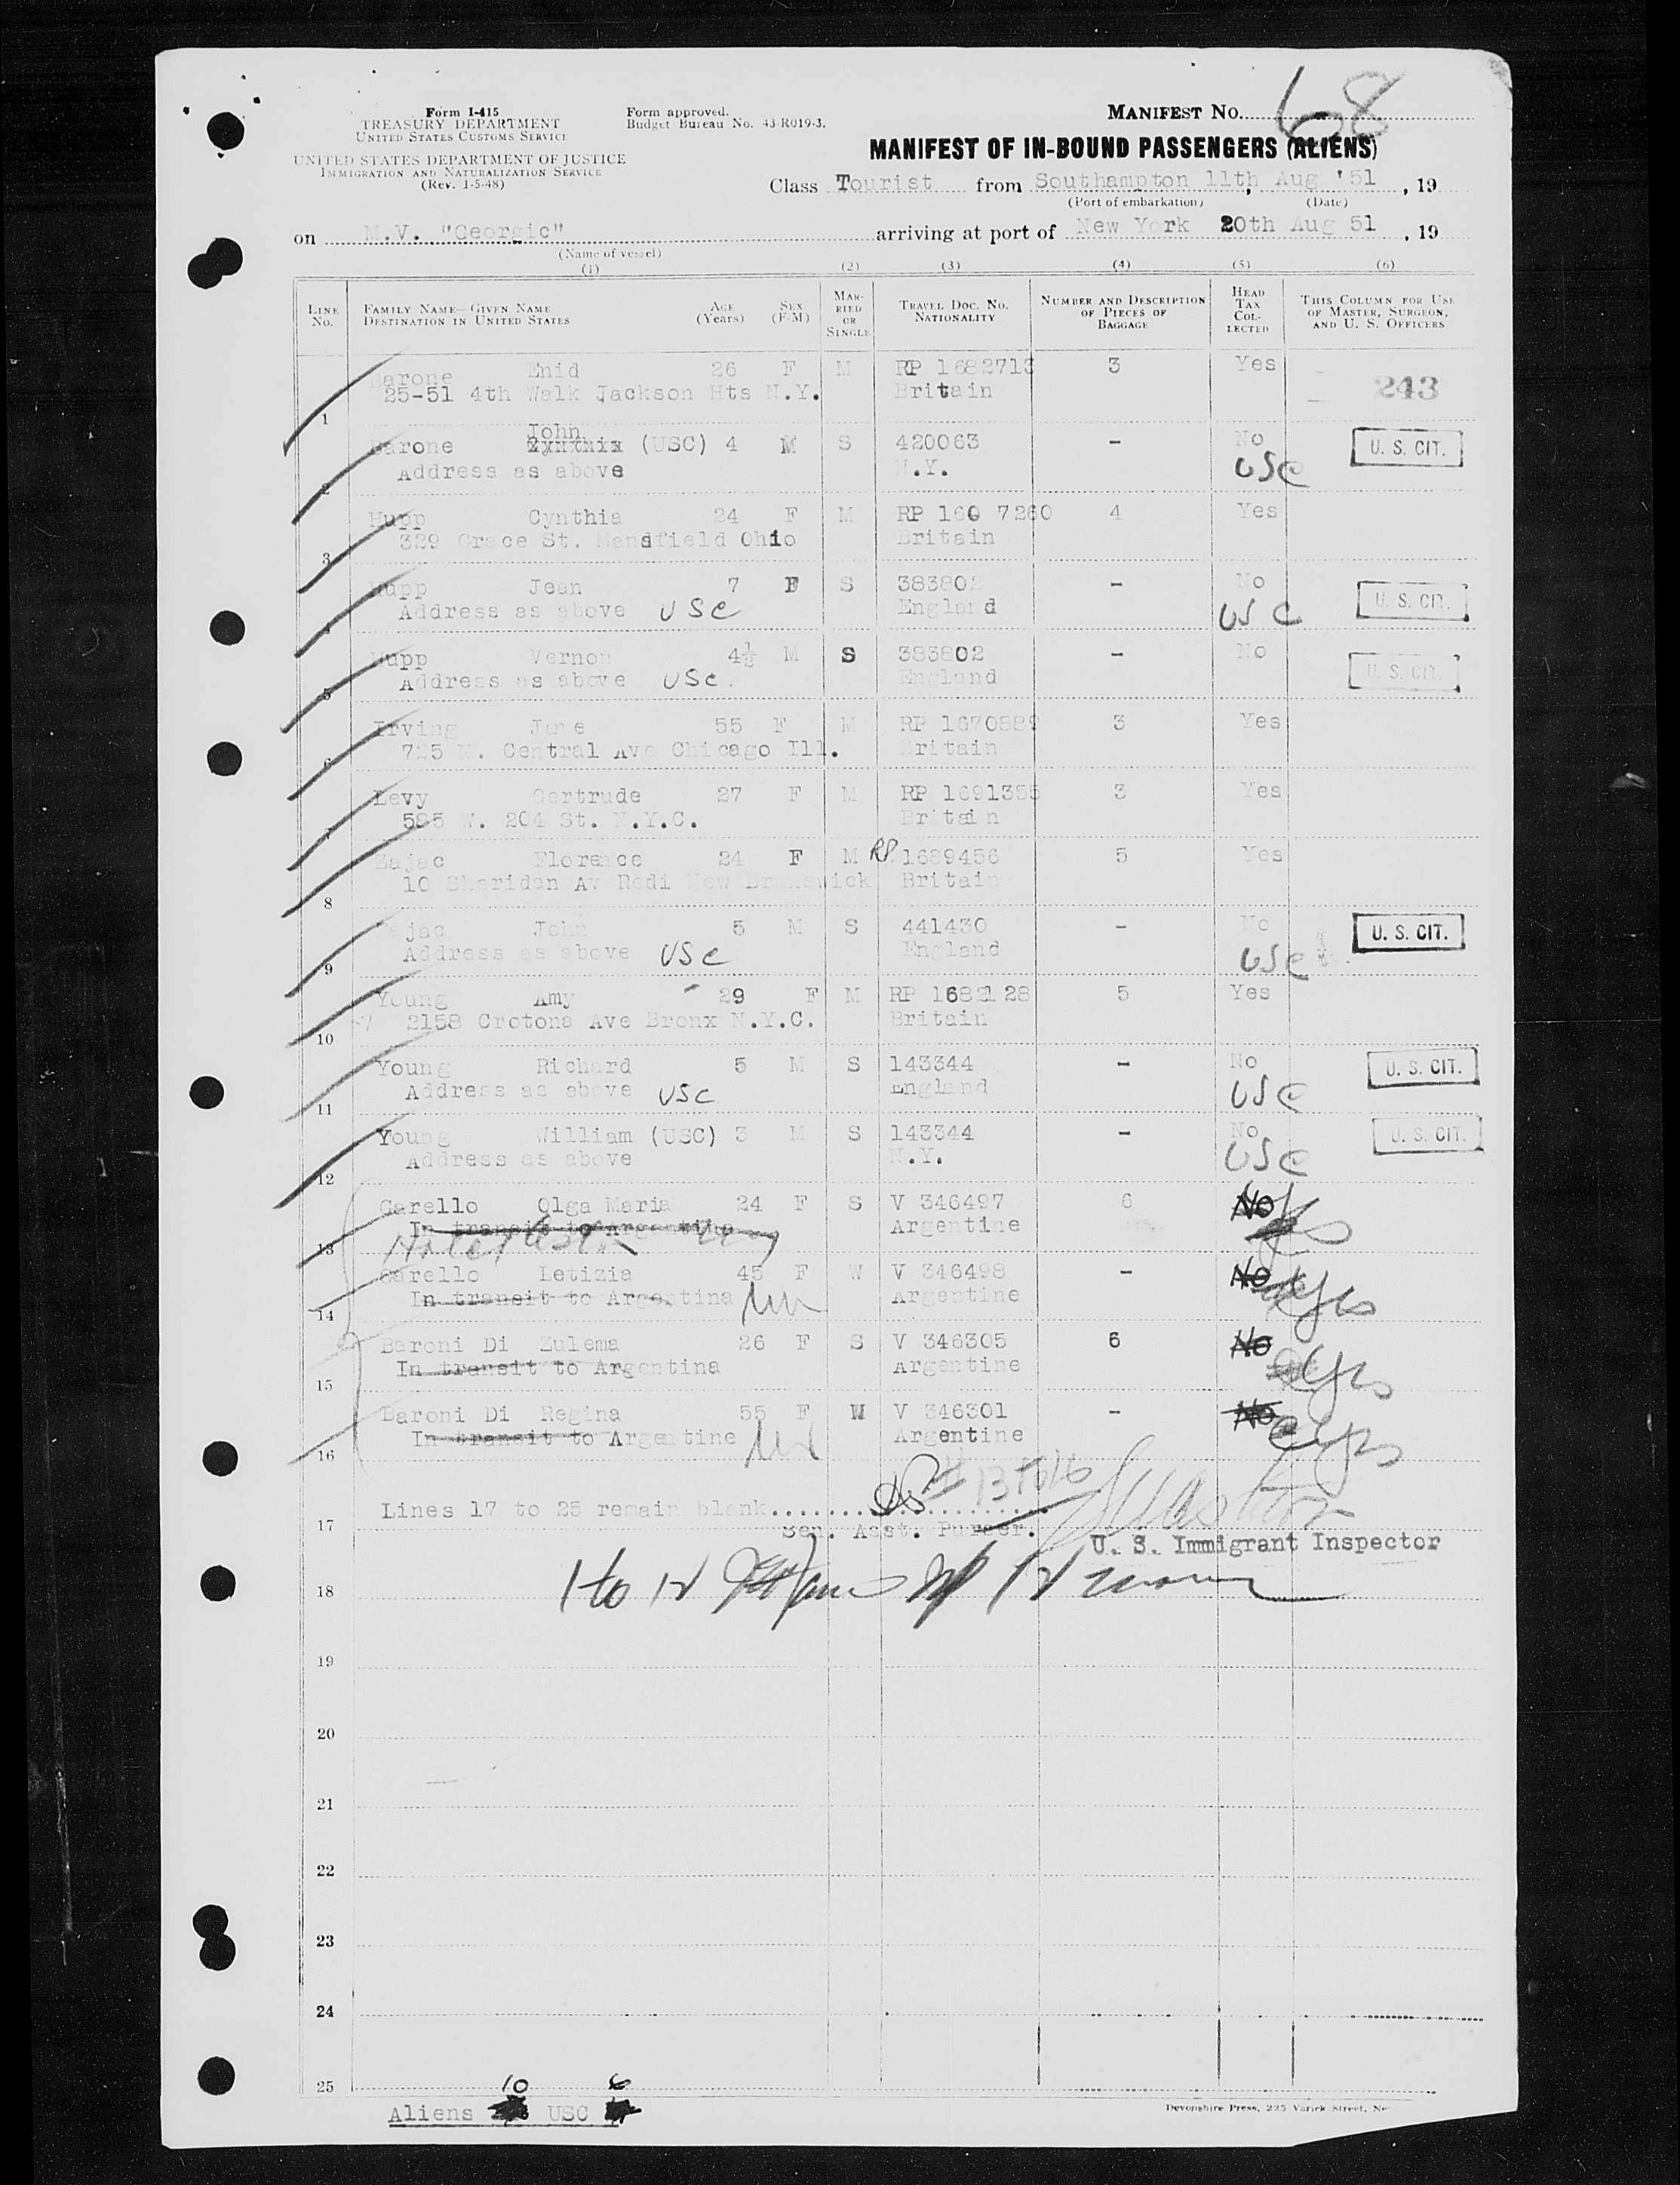 Form I-415
TREASURY DEPARTMENT
UNITED STATES CUSTOMS SERVICE
UNITED STATES DEPARTMENT OF JUSTICE
IMMIGRATION AND NATURALIZATION SERVICE
(Rev. 1-5-48)
Form approved.
Budget Bureau No. 43-R019-3.
MANIFEST No. 68
MANIFEST OF IN-BOUND PASSENGERS (ALIENS)
Class Tourist from Southampton 11th, Aug '51, 19
(Port of embarkation) (Date)
on M.V. "Georgic" arriving at port of New York 20th Aug 51, 19
(Name of vessel)
(1) (2) (3) (4) (5) (6)
LINE No. FAMILY NAME—GIVEN NAME DESTINATION IN UNITED STATES AGE (Years) SEX (F-M) MARRIED OR SINGLE TRAVEL DOC. NO. NATIONALITY NUMBER AND DESCRIPTION OF PIECES OF BAGGAGE HEAD TAX COLLECTED THIS COLUMN FOR USE OF MASTER, SURGEON, AND U. S. OFFICERS
Barone Enid 26 F M RP 1682713 3 Yes 243
25-51 4th Walk Jackson Hts N.Y. Britain
1
John
Barone (USC) 4 M S 420063 - No U. S. CIT.
Address as above N.Y. USC
2
Hupp Cynthia 24 F M RP 160 7260 4 Yes
329 Grace St. Mansfield Ohio Britain
3
Hupp Jean 7 F S 383802 - No U. S. CIT.
Address as above USC England USC
4
Hupp Vernon 4½ M S 383802 - No U. S. CIT.
Address as above USC. England
5
Irving Jane 55 F M RP 1670889 3 Yes
725 N. Central Ave Chicago Ill. Britain
6
Levy Gertrude 27 F M RP 1691355 3 Yes
585 W. 204 St. N.Y.C. Britain
7
Zajac Florence 24 F M RP 1689456 5 Yes
10 Sheridan Av Redi New Brunswick Britain
8
Zajac John 5 M S 441430 - No U. S. CIT.
Address as above USC England USC
9
Young Amy 29 F M RP 1682128 5 Yes
2158 Crotona Ave Bronx N.Y.C. Britain
10
Young Richard 5 M S 143344 - No U. S. CIT.
Address as above USC England USC
11
Young William (USC) 3 M S 143344 - No U. S. CIT.
Address as above N.Y. USC
12
Garello Olga Maria 24 F S V 346497 6 No Yes
In transit to Argentina Argentine
Hotel
13
Garello Letizia 45 F W V 346498 - No Yes
In transit to Argentina Argentine
14
Baroni Di Zulema 26 F S V 346305 6 No Yes
In transit to Argentina Argentine
15
Baroni Di Regina 55 F W V 346301 - No Yes
In transit to Argentine Argentine
16
13 to 16
Lines 17 to 25 remain blank
17 Sen. Asst. Purser. U. S. Immigrant Inspector
18 1 to 12
19
20
21
22
23
24
25
10 6
Aliens USC
Devonshire Press, 225 Varick Street, Ne